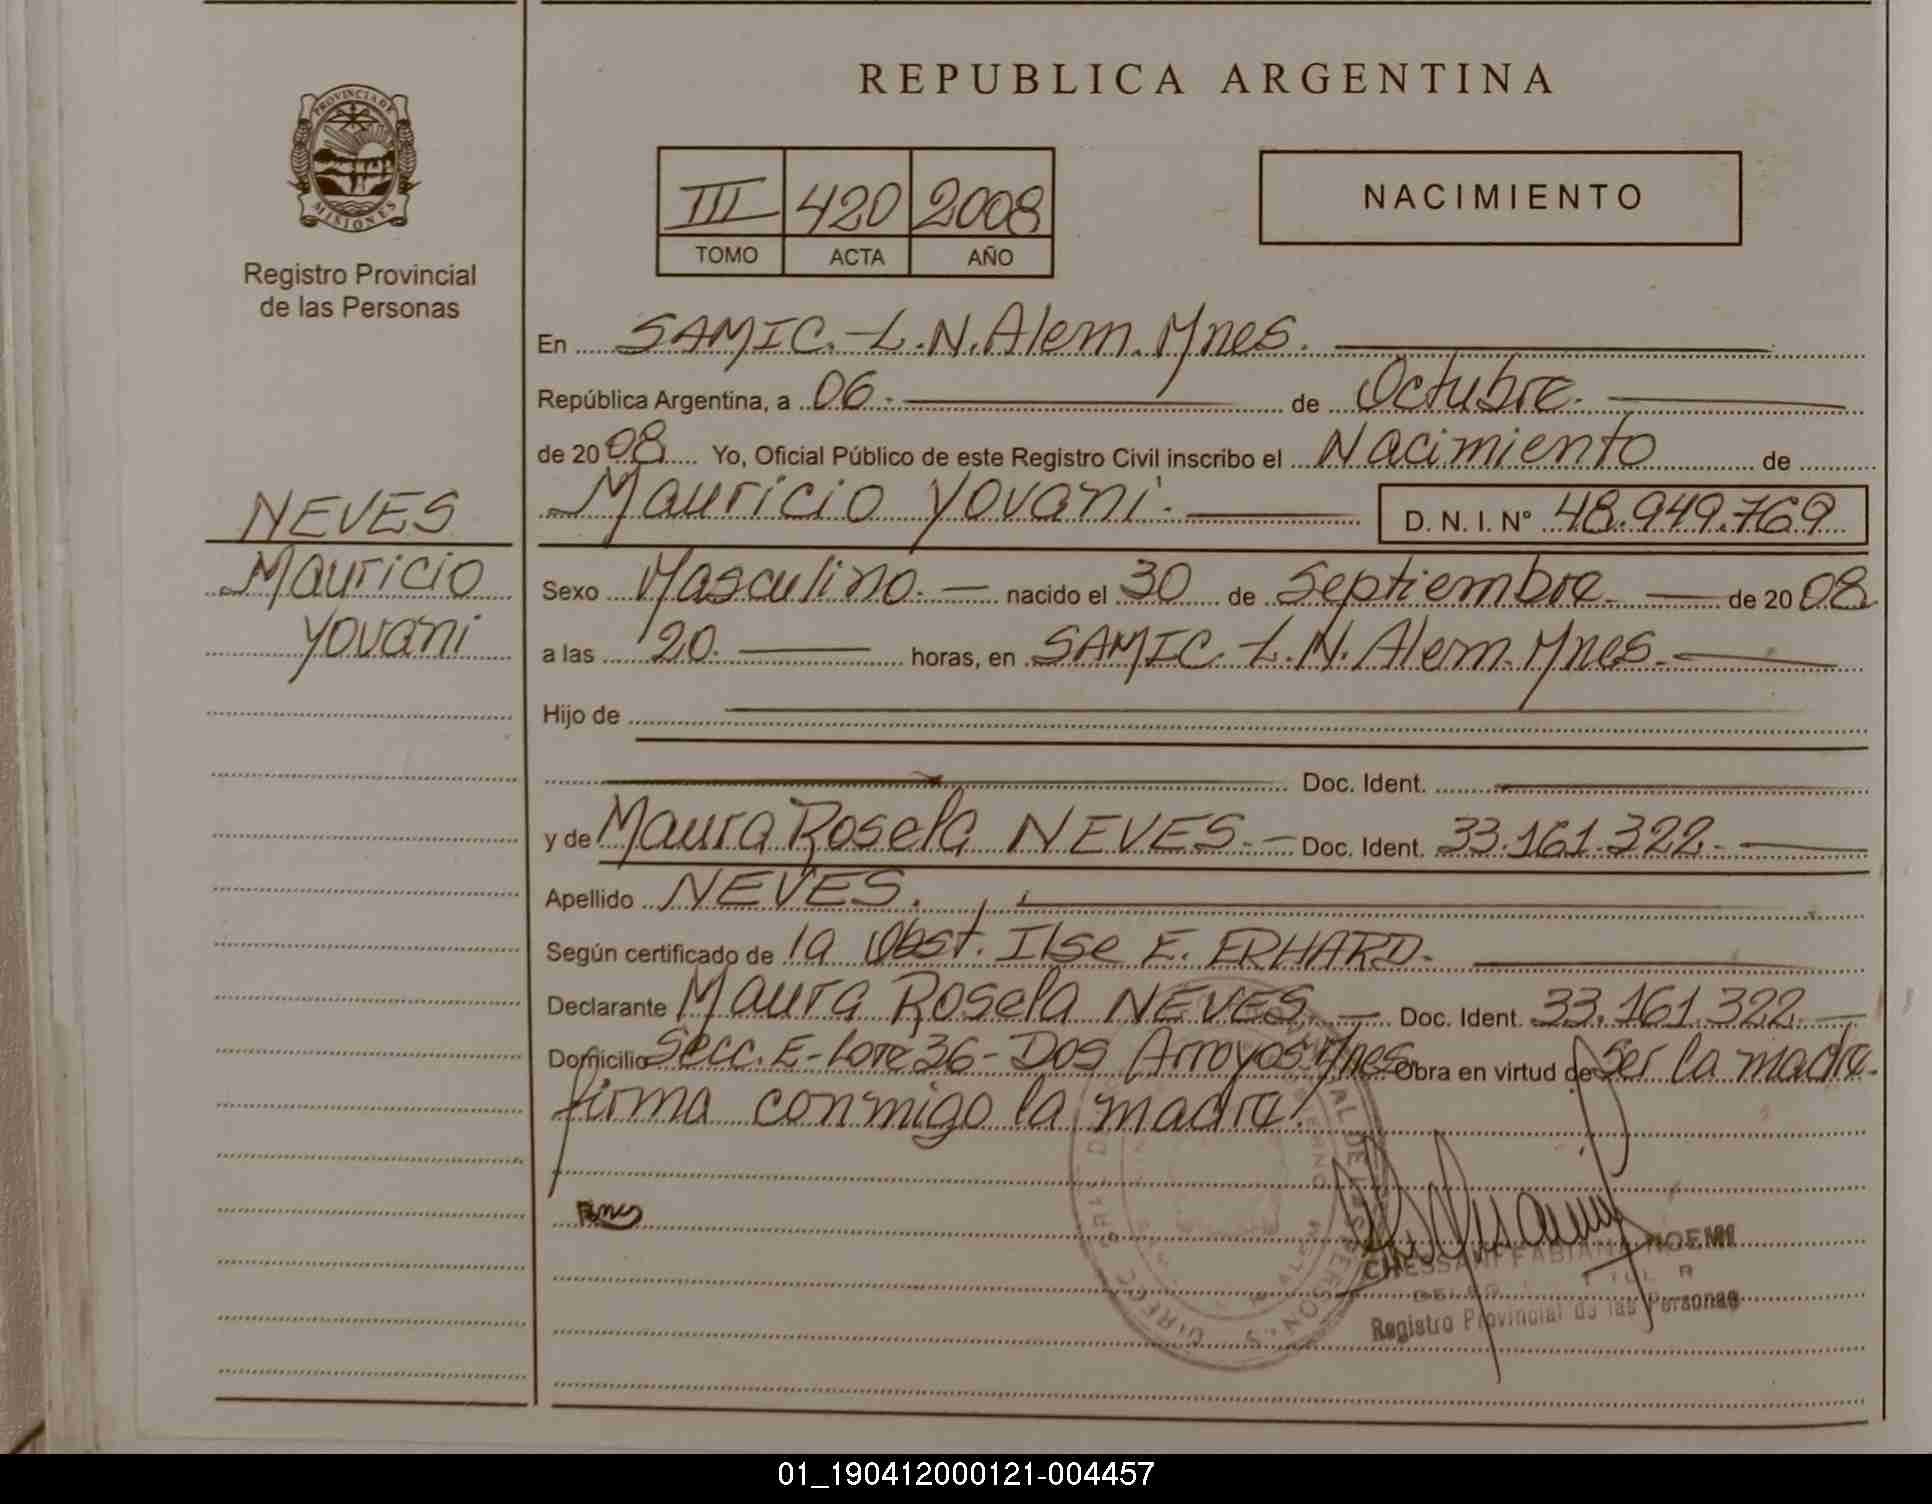 REPUBLICA ARGENTINA
PROVINCIA DE
MISIONES
Registro Provincial
de las Personas
III 420 2008
TOMO ACTA AÑO
NACIMIENTO
En SAMIC.-L.N.Alem.Mnes.
República Argentina, a 06. de Octubre.
de 2008 Yo, Oficial Público de este Registro Civil inscribo el Nacimiento de
Mauricio Yovani. D. N. I. N° 48.949.769
NEVES
Mauricio
Yovani
Sexo Masculino. nacido el 30 de Septiembre de 2008
a las 20. horas, en SAMIC.-L.N.Alem.Mnes.
Hijo de
Doc. Ident.
y de Maura Rosela NEVES.- Doc. Ident. 33.161.322.
Apellido NEVES.
Según certificado de la Obst. Ilse E. ERHARD.
Declarante Maura Rosela NEVES. Doc. Ident. 33.161.322.
Domicilio Secc. E-Lote 36-Dos Arroyos Mnes. Obra en virtud de Ser la madre.
firma conmigo la madre.
NOEMI
Registro Provincial de las Personas
01_190412000121-004457